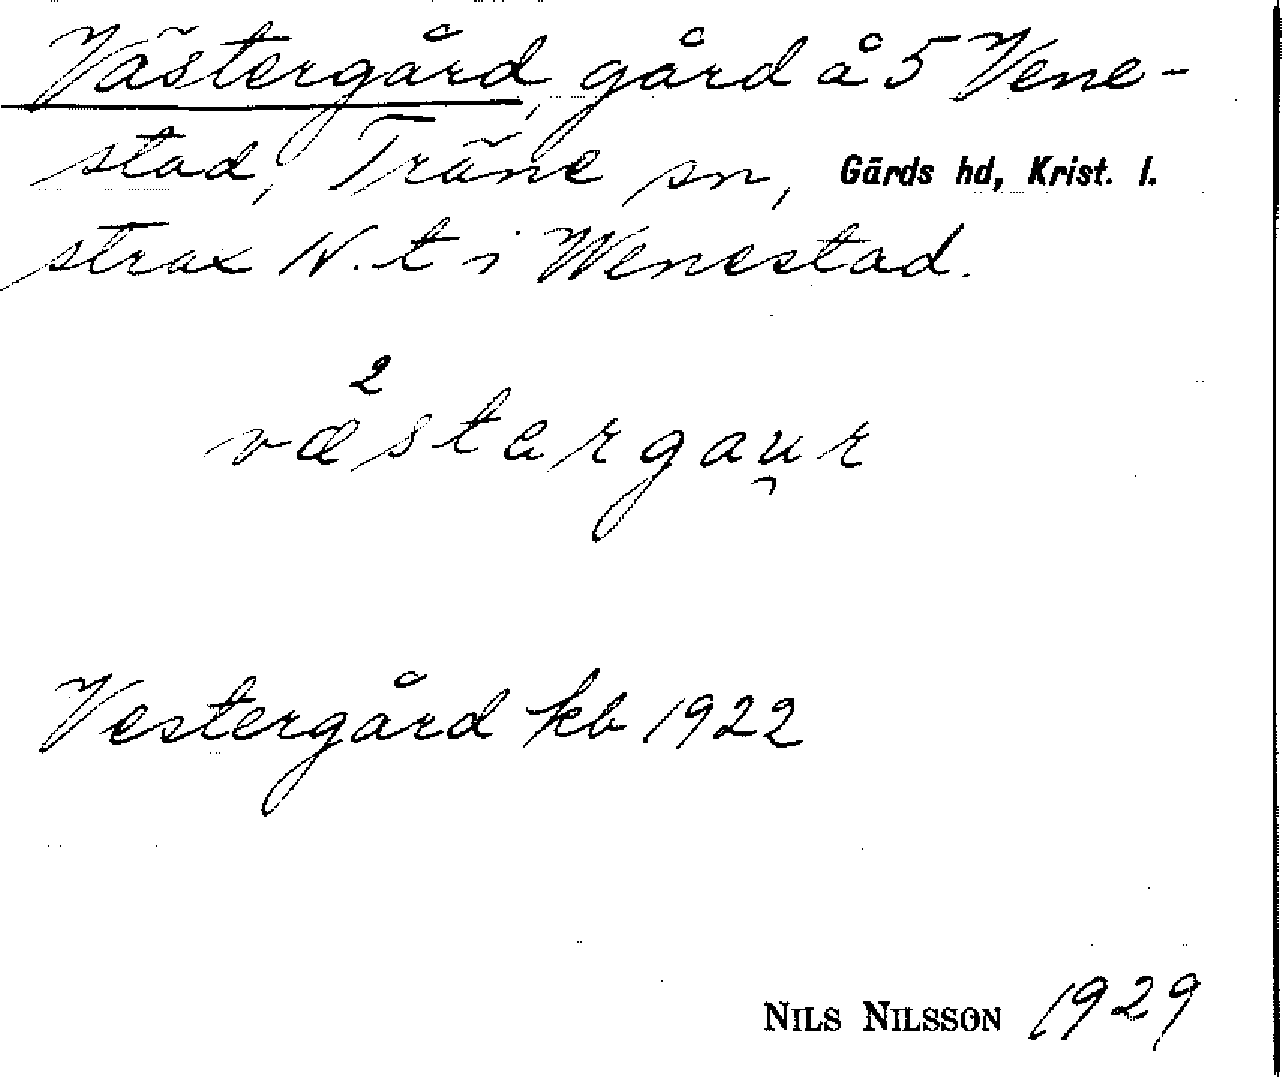 Västergård, gård å 5 Vene-
stad, Träne sn, Gärds hd, Krist. l.
strax N. t i Wenestad.
2
væstargau̯r
Vestergård kb 1922
NILS NILSSON 1929